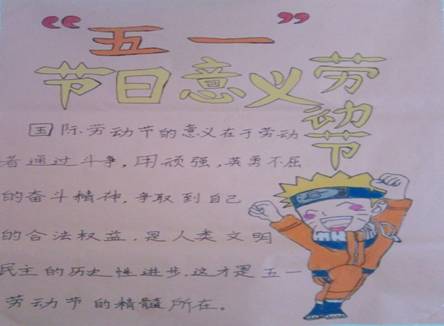 “五一”
节日意义
劳动节
国际劳动节的意义在于劳动
者通过斗争，用顽强，英勇不屈
的奋斗精神，争取到自己
的合法权益，是人类文明
民主的历史性进步，这才是五一
劳动节的精髓所在。